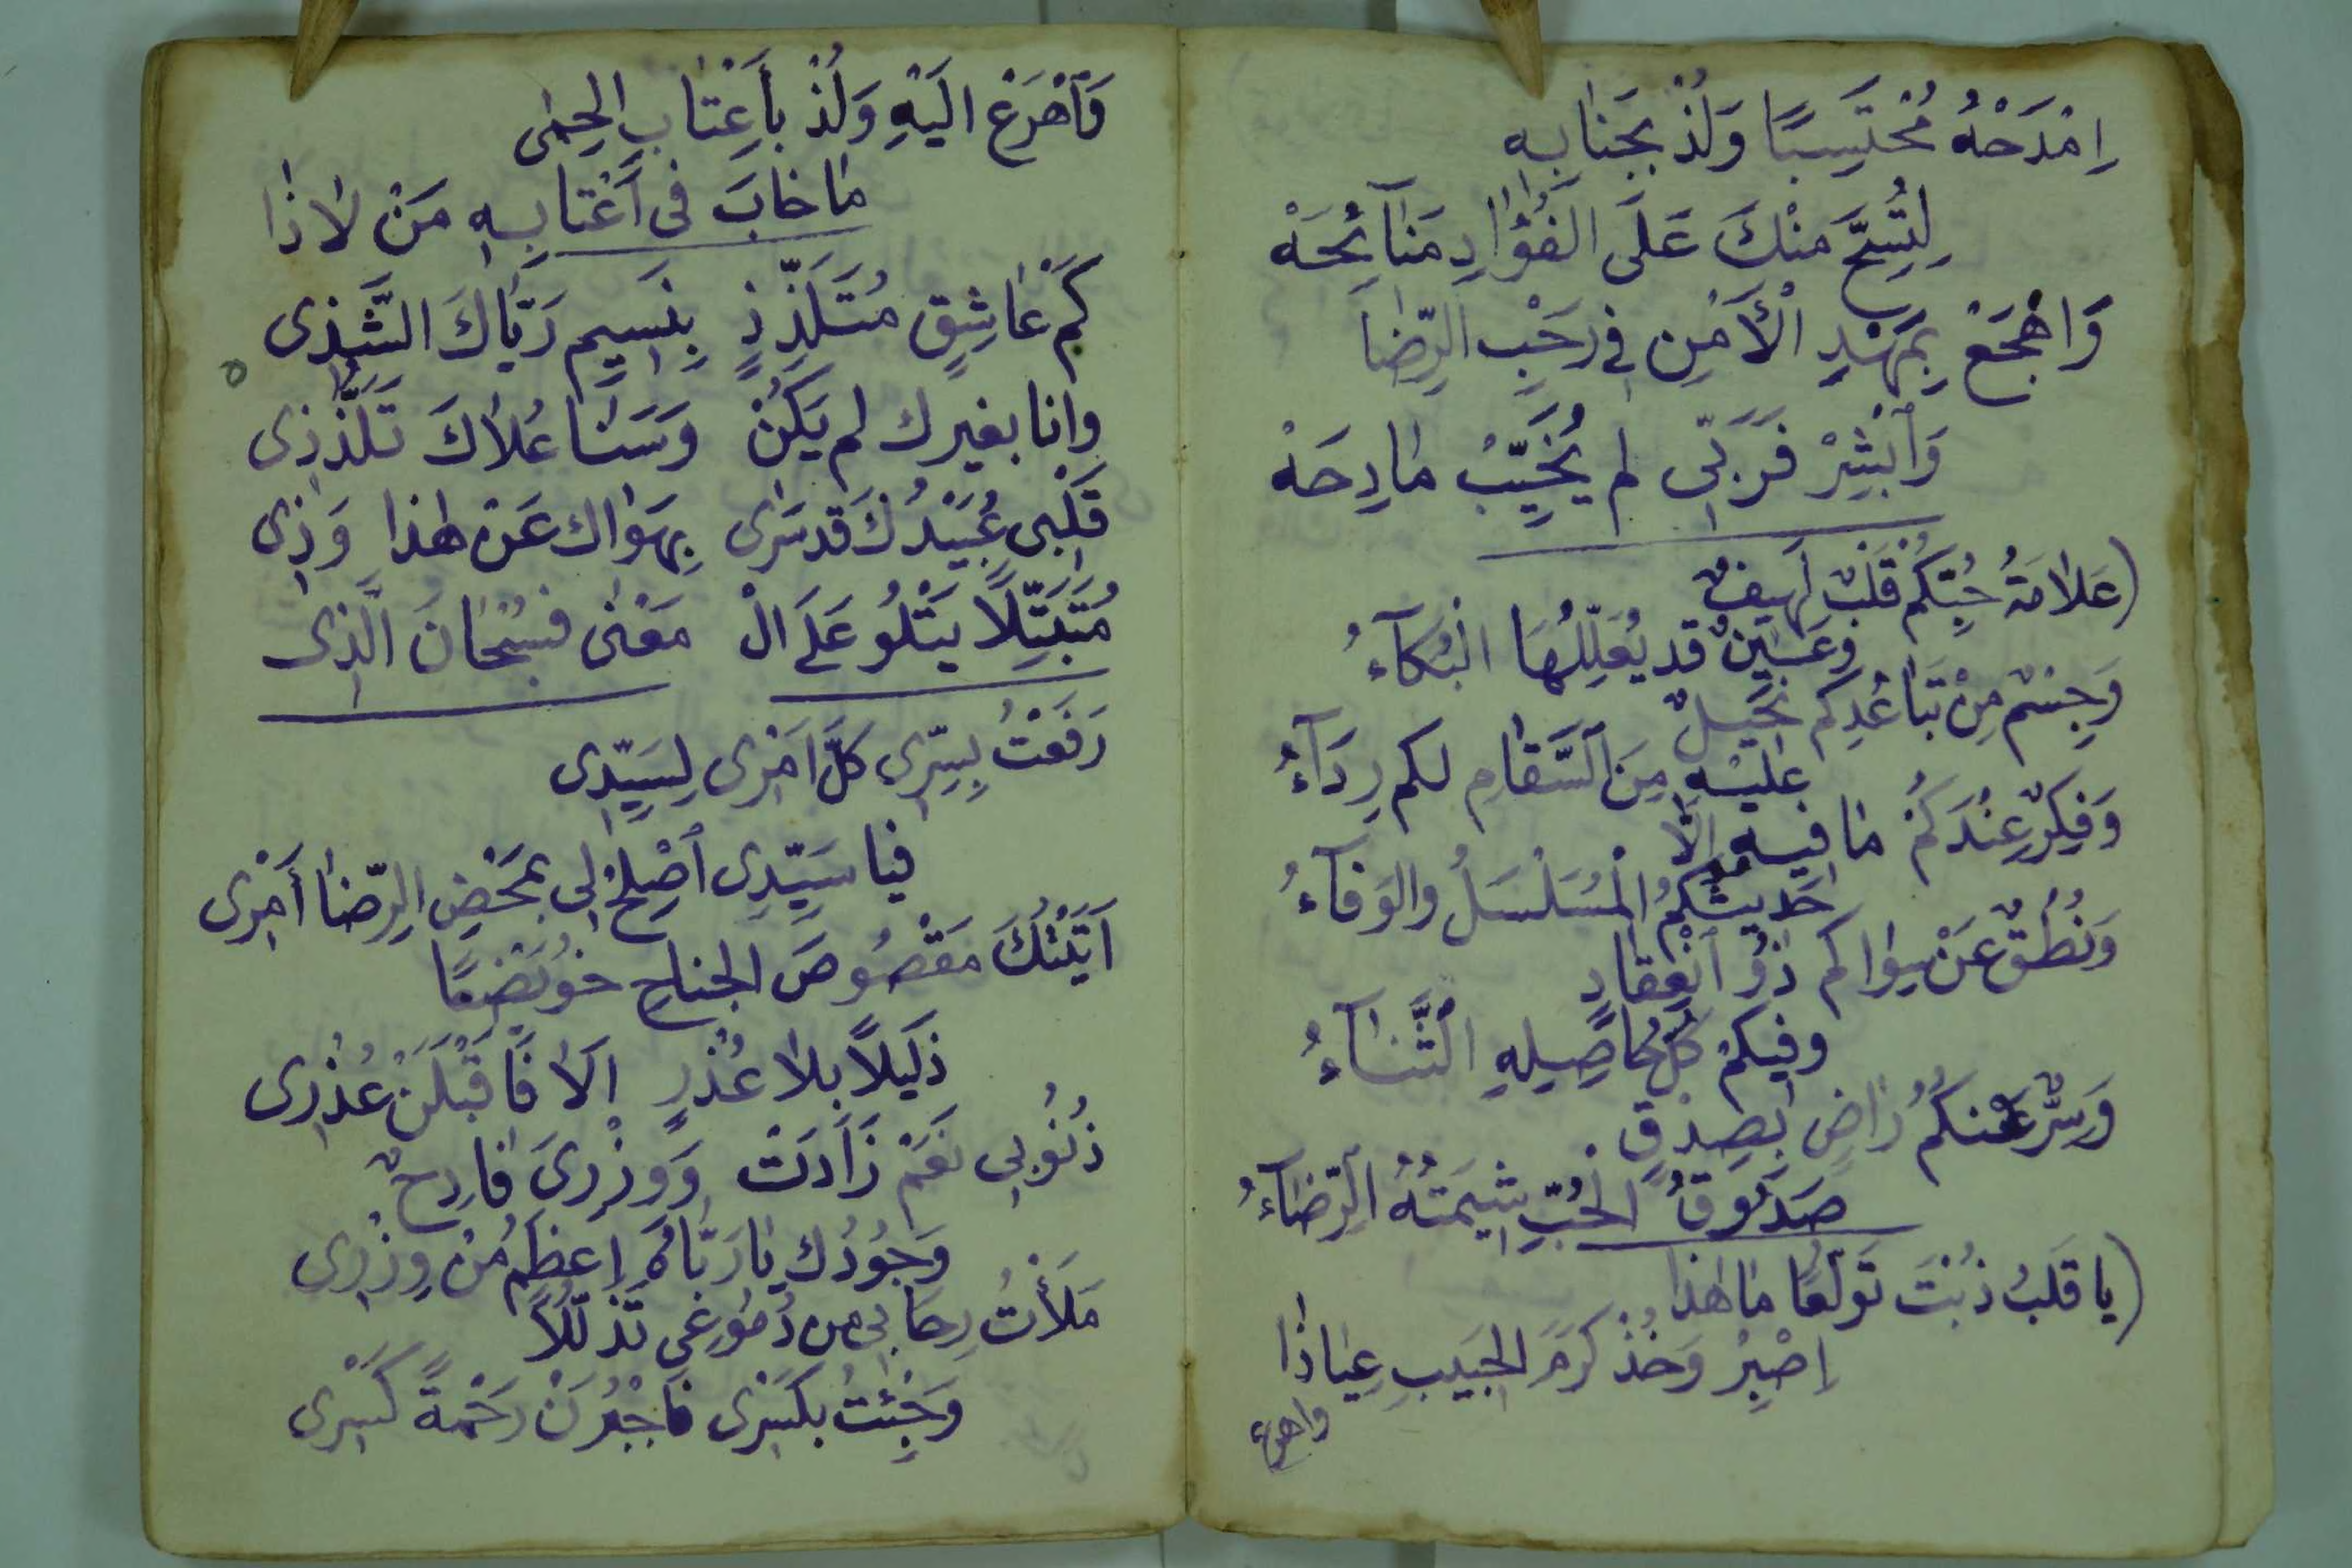 اِمْدَحْهُ مُحْتَسِبًا وَلُذْ بِجَنَابِهِ
لِتُسِحَّ مِنْكَ عَلَى الْفُؤَادِ مَنَآئِحَهْ
وَاهْجَعْ بِمَهْدِ الْأَمْنِ فِي رَحْبِ الرِّضَا
وَابْشِرْ فَرَبِّى لم يُخَيِّبْ مَادِحَهْ
(عَلَامَةُ حُبِّكُمْ قَلْبٌ لَهِيفٌ
وَعَيْنٌ قد يُعَلِّلُهَا الْبُكَآءُ
وَجِسْمٌ مِنْ تَبَاعُدِكم نَحِيلٌ
عَلَيْهِ مِنَ السَّقَامِ لكم رِدَآءُ
وَفِكْرٌ عِنْدَكُمْ مَا فِيهِ اِلَّا
حَدِيثُكُمُ الْمُسَلْسَلُ والوَفَآءُ
وَنُطْقٌ عَنْ سِوَاكم ذُو انْعِقَادٍ
وفِيكُمْ كُلُّ حَاصِلِهِ الثَّنَآءُ
وَسِرٌّ عَنكُمُ رَاضٍ بِصِدْقٍ
صَدُوقُ الْحُبِّ شِيمَتُهُ الرِّضَآءُ
(يا قَلْبُ ذُبْتَ تَوَلُّعًا مَا هٰذَا
اِصْبِرْ وَخُذْ كَرَمَ الْحَبِيبِ عِيَاذًا
واهرع
فَاَهْرَعْ اِلَيْهِ وَلُذْ بِأَعْتَابِ الحِمٰى
مَا خَابَ فى أَعْتَابِهِ مَنْ لَاذَا
كَمْ عَاشِقٍ مُتَلَذِّذٍ بِنَسِيمِ رَيَّاكَ الشَّذِى
وانا بغيرك لم يَكُنْ وَسَنَا عُلَاكَ تَلَذُّذِى
قَلْبِى عُبَيْدُكَ قد سَرٰى بِهَوَاك عَنْ هٰذا وَذِى
مُتَبَتِّلًا يَتْلُو عَلَى الْ مَعْنٰى فسُبْحَانَ الَّذِى
رَفَعْتُ بِسِرِّى كلَّ اَمْرِى لِسَيِّدِى
فيا سَيِّدِى أَصْلِحْ لِى بِمَحْضِ الرِّضَا أَمْرِى
اَتَيْتُكَ مَقْصُوصَ الجناحِ خُوَيْضِعًا
ذَلِيلًا بلا عُذْرٍ اَلَا فَاقْبَلَنْ عُذْرِى
ذُنُوبِى نَعَمْ زَادَتْ وَوِزْرِىَ فَادِحٌ
وَجُودُك يَا رَبَّاهُ اعظمُ مِنْ وِزْرِى
مَلَأْتُ رِحَابِى من دُمُوعِى تَذَلُّلًا
وَجِئْتُ بكَسْرِى فَاجْبُرَنْ رَحْمَةً كَسْرِى